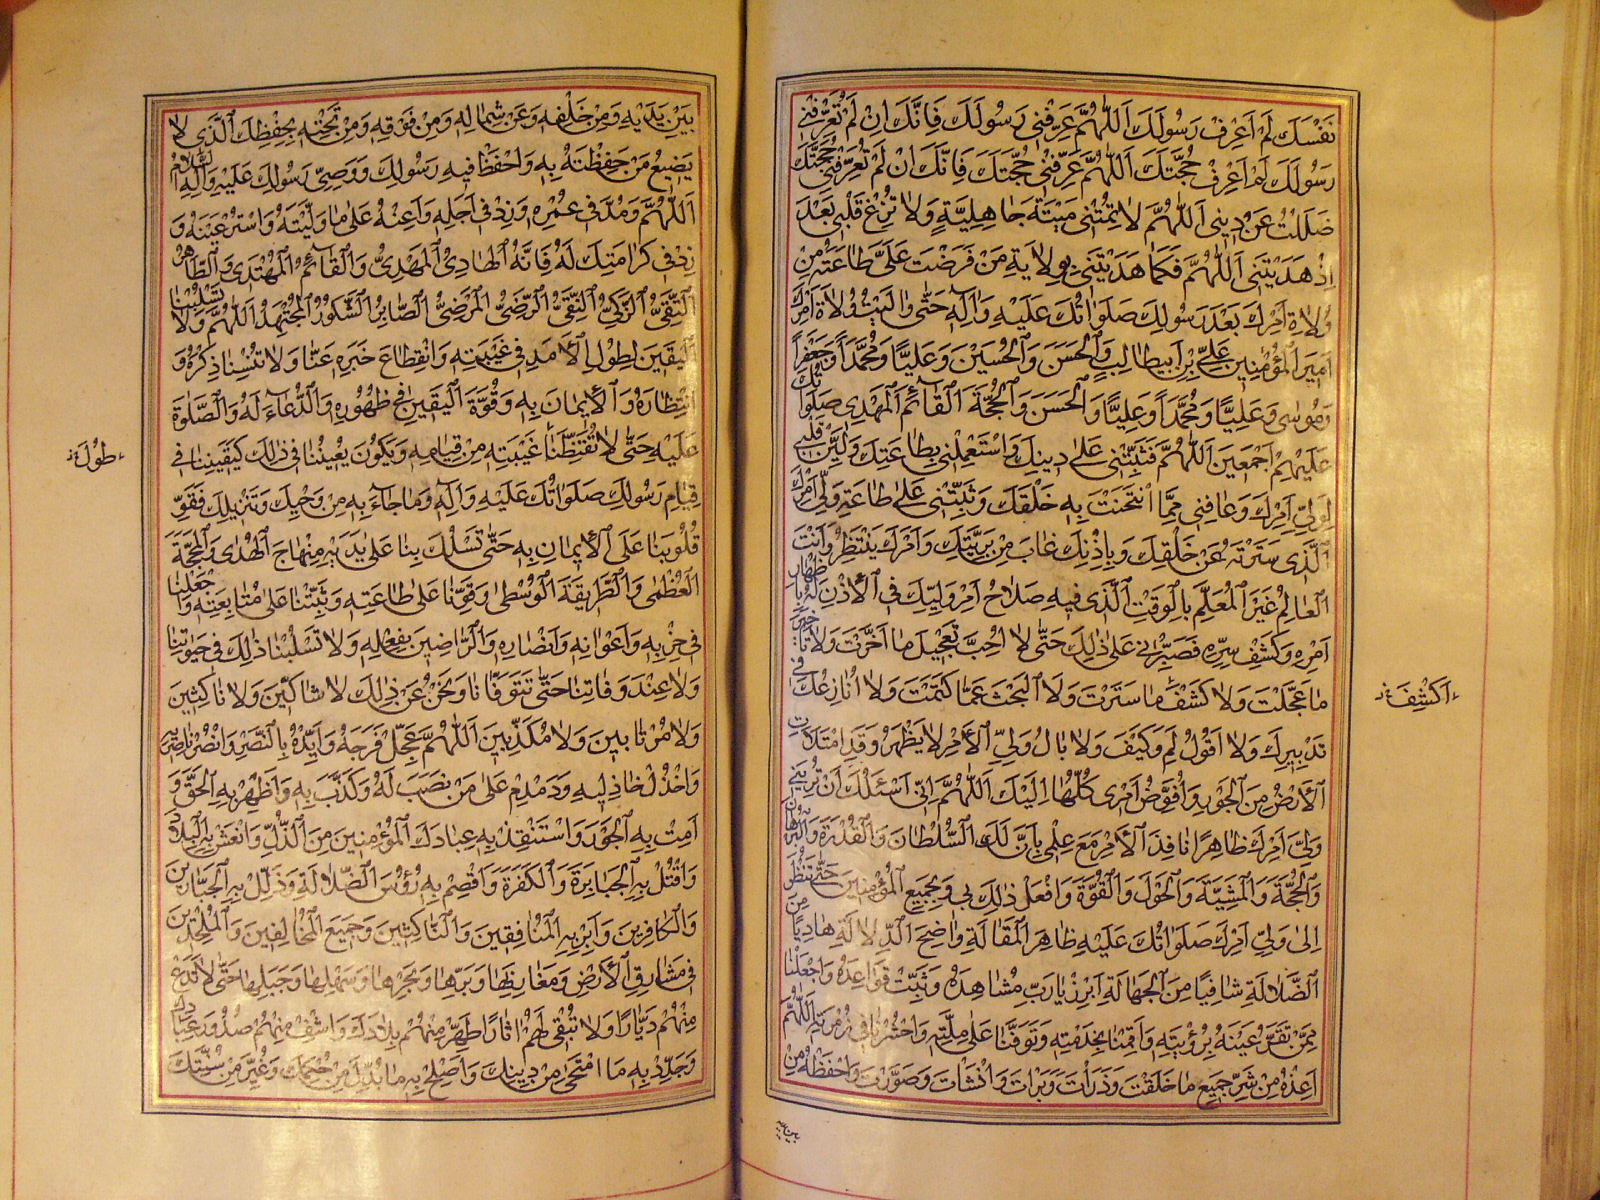 نَفْسَكَ لَمْ اَعْرِفْ رَسُولَكَ اَللّٰهُمَّ عَرِّفْنِى رَسُولَكَ فَاِنَّكَ اِنْ لَمْ تُعَرِّفْنِى
رَسُولَكَ لَمْ اَعْرِفْ حُجَّتَكَ اَللّٰهُمَّ عَرِّفْنِى حُجَّتَكَ فَاِنَّكَ اِنْ لَمْ تُعَرِّفْنِى حُجَّتَكَ
ضَلَلْتُ عَنْ دِينِى اَللّٰهُمَّ لَا تُمِتْنِى مَيْتَةً جَاهِلِيَّةً وَلَا تُزِغْ قَلْبِى بَعْدَ
اِذْ هَدَيْتَنِى اَللّٰهُمَّ فَكَمَا هَدَيْتَنِى بِوِلَايَةِ مَنْ فَرَضْتَ عَلَىَّ طَاعَتَهُ مِنْ
وُلَاةِ اَمْرِكَ بَعْدَ رَسُولِكَ صَلَوَاتُكَ عَلَيْهِ وَاٰلِهِ حَتّٰى وَالَيْتُ وُلَاةَ اَمْرِكَ
اَمِيرَ الْمُؤْمِنِينَ عَلِىِّ بْنِ اَبِيطَالِبٍ وَالْحَسَنَ وَالْحُسَيْنَ وَعَلِيًّا وَمُحَمَّدًا وَجَعْفَرًا
وَمُوسٰى وَعَلِيًّا وَمُحَمَّدًا وَعَلِيًّا وَالْحَسَنَ وَالْحُجَّةَ الْقَآئِمَ الْمَهْدِى صَلَوَاتُكَ
عَلَيْهِمْ اَجْمَعِينَ اَللّٰهُمَّ فَثَبِّتْنِى عَلٰى دِينِكَ وَاسْتَعْمِلْنِى بِطَاعَتِكَ وَلَيِّنْ قَلْبِى
لِوَلِىِّ اَمْرِكَ وَعَافِنِى مِمَّا امْتَحَنْتَ بِهِ خَلْقَكَ وَثَبِّتْنِى عَلٰى طَاعَةِ وَلِىِّ اَمْرِكَ
الَّذِى سَتَرْتَهُ عَنْ خَلْقِكَ وَبِاِذْنِكَ غَابَ مِنْ بَرِيَّتِكَ وَاَمْرَكَ يَنْتَظِرُ وَاَنْتَ
الْعَالِمُ غَيْرُ الْمُعَلَّمِ بِالْوَقْتِ الَّذِى فِيهِ صَلَاحُ اَمْرِ وَلِيِّكَ فِى الْاِذْنِ لَهُ بِاِظْهَارِ
اَمْرِهِ وَكَشْفِ سِرِّهِ فَصَبِّرْنِى عَلٰى ذٰلِكَ حَتّٰى لَا اُحِبَّ تَعْجِيلَ مَا اَخَّرْتَ وَلَا تَاْخِيرَ
مَا عَجَّلْتَ وَلَا كَشْفَ مَا سَتَرْتَ وَلَا الْبَحْثَ عَمَّا كَتَمْتَ وَلَا اُنَازِعَكَ فِى
اَكْشِفَ
تَدْبِيرِكَ وَلَا اَقُولَ لِمَ وَكَيْفَ وَلَا بَالُ وَلِىِّ الْاَمْرِ لَا يَظْهَرُ وَقَدِ امْتَلَاَتِ
الْاَرْضُ مِنَ الْجَوْرِ وَاُفَوِّضُ اَمْرِى كُلَّهَا اِلَيْكَ اَللّٰهُمَّ اِنِّى اَسْئَلُكَ اَنْ تُرِيَنِى
وَلِىَّ اَمْرِكَ ظَاهِرًا نَافِذَ الْاَمْرِ مَعَ عِلْمِى بِاَنَّ لَكَ السُّلْطَانَ وَالْقُدْرَةَ وَالْبُرْهَانَ
وَالْحُجَّةَ وَالْمَشِيَّةَ وَالْحَوْلَ وَالْقُوَّةَ وَافْعَلْ ذٰلِكَ بِى وَبِجَمِيعِ الْمُؤْمِنِينَ حَتّٰى نَنْظُرَ
اِلٰى وَلِىِّ اَمْرِكَ صَلَوَاتُكَ عَلَيْهِ ظَاهِرَ الْمَقَالَةِ وَاضِحَ الدِّلَالَةِ هَادِيًا مِنَ
الضَّلَالَةِ شَافِيًا مِنَ الْجَهَالَةِ اَبْرِزْ يَا رَبِّ مُشَاهِدَهُ وَثَبِّتْ قَوَاعِدَهُ وَاجْعَلْنَا
مِمَّنْ تَقَرُّ عَيْنُهُ بِرُؤْيَتِهِ وَاَقِمْنَا بِخِدْمَتِهِ وَتَوَفَّنَا عَلٰى مِلَّتِهِ وَاحْشُرْنَا فِى زُمْرَتِهِ اَللّٰهُمَّ
اَعِذْهُ مِنْ شَرِّ جَمِيعِ مَا خَلَقْتَ وَذَرَاْتَ وَبَرَاْتَ وَاَنْشَاْتَ وَصَوَّرْتَ وَاحْفَظْهُ مِنْ
بين يديه
بَيْنِ يَدَيْهِ وَمِنْ خَلْفِهِ وَعَنْ شِمَالِهِ وَمِنْ فَوْقِهِ وَمِنْ تَحْتِهِ بِحِفْظِكَ الَّذِى لَا
يَضِيعُ مَنْ حَفِظْتَهُ بِهِ وَاحْفَظْ فِيهِ رَسُولَكَ وَوَصِىَّ رَسُولِكَ عَلَيْهِ وَاٰلِهِ السَّلَامُ
اَللّٰهُمَّ وَمُدَّ فِى عُمْرِهِ وَزِدْ فِى اَجَلِهِ وَاَعِنْهُ عَلٰى مَا وَلَّيْتَهُ وَاسْتَرْعَيْتَهُ وَ
زِدْ فِى كَرَامَتِكَ لَهُ فَاِنَّهُ الْهَادِىُ الْمَهْدِىُّ وَالْقَآئِمُ الْمُهْتَدِى وَالطَّاهِرُ
التَّقِىُّ الزَّكِىُّ النَّقِىُّ الرَّضِىُّ الْمَرْضِىُّ الصَّابِرُ الشَّكُورُ الْمُجْتَهِدُ اَللّٰهُمَّ وَلَا تَسْلُبْنَا
الْيَقِينَ لِطُولِ الْاَمَدِ فِى غَيْبَتِهِ وَانْقِطَاعِ خَبَرِهِ عَنَّا وَلَا تُنْسِنَا ذِكْرَهُ وَ
انْتِظَارَهُ وَالْاِيمَانَ بِهِ وَقُوَّةَ الْيَقِينِ فِى ظُهُورِهِ وَالدُّعَآءَ لَهُ وَالصَّلٰوةَ
عَلَيْهِ حَتّٰى لَا تُقَنِّطَنَا غَيْبَتُهُ مِنْ قِيَامِهِ وَيَكُونَ يَقِينُنَا فِى ذٰلِكَ كَيَقِينِنَا فِى
طُولُ
قِيَامِ رَسُولِكَ صَلَوَاتُكَ عَلَيْهِ وَاٰلِهِ وَمَا جَآءَ بِهِ مِنْ وَحْيِكَ وَتَنْزِيلِكَ فَقَوِّ
قُلُوبَنَا عَلَى الْاِيمَانِ بِهِ حَتّٰى تَسْلُكَ بِنَا عَلٰى يَدَيْهِ مِنْهَاجَ الْهُدٰى وَالْمَحَجَّةَ
الْعُظْمٰى وَالطَّرِيقَةَ الْوُسْطٰى وَقَوِّنَا عَلٰى طَاعَتِهِ وَثَبِّتْنَا عَلٰى مُتَابِعَتِهِ وَاجْعَلْنَا
فِى حِزْبِهِ وَاَعْوَانِهِ وَاَنْصَارِهِ وَالرَّاضِينَ بِفِعْلِهِ وَلَا تَسْلُبْنَا ذٰلِكَ فِى حَيٰوتِنَا
وَلَا عِنْدَ وَفَاتِنَا حَتّٰى تَتَوَفَّانَا وَنَحْنُ عَنْ ذٰلِكَ لَا شَاكِّينَ وَلَا نَاكِثِينَ
وَلَا مُرْتَابِينَ وَلَا مُكَذِّبِينَ اَللّٰهُمَّ عَجِّلْ فَرَجَهُ وَاَيِّدْهُ بِالنَّصْرِ وَانْصُرْ نَاصِرِيهِ
وَاخْذُلْ خَاذِلِيهِ وَدَمْدِمْ عَلٰى مَنْ نَصَبَ لَهُ وَكَذَّبَ بِهِ وَاَظْهِرْ بِهِ الْحَقَّ وَ
اَمِتْ بِهِ الْجَوْرَ وَاسْتَنْقِذْ بِهِ عِبَادَكَ الْمُؤْمِنِينَ مِنَ الذُّلِّ وَانْعَشْ بِهِ الْبِلَادَ
وَاقْتُلْ بِهِ الْجَبَابِرَةَ وَالْكَفَرَةَ وَاقْصِمْ بِهِ رُؤُسَ الضَّلَالَةِ وَذَلِّلْ بِهِ الْجَبَّارِينَ
وَالْكَافِرِينَ وَاَبِرْ بِهِ الْمُنَافِقِينَ وَالنَّاكِثِينَ وَجَمِيعَ الْمُخَالِفِينَ وَالْمُلْحِدِينَ
فِى مَشَارِقِ الْاَرْضِ وَمَغَارِبِهَا وَبَرِّهَا وَبَحْرِهَا وَسَهْلِهَا وَجَبَلِهَا حَتّٰى لَا تَدَعَ
مِنْهُمْ دَيَّارًا وَلَا تُبْقِى لَهُمْ اٰثَارًا طَهِّرْ مِنْهُمْ بِلَادَكَ وَاشْفِ مِنْهُمْ صُدُورَ عِبَادِكَ
وَجَدِّدْ بِهِ مَا امْتَحٰى مِنْ دِينِكَ وَاَصْلِحْ بِهِ مَا بُدِّلَ مِنْ حُكْمِكَ وَغُيِّرَ مِنْ سُنَّتِكَ